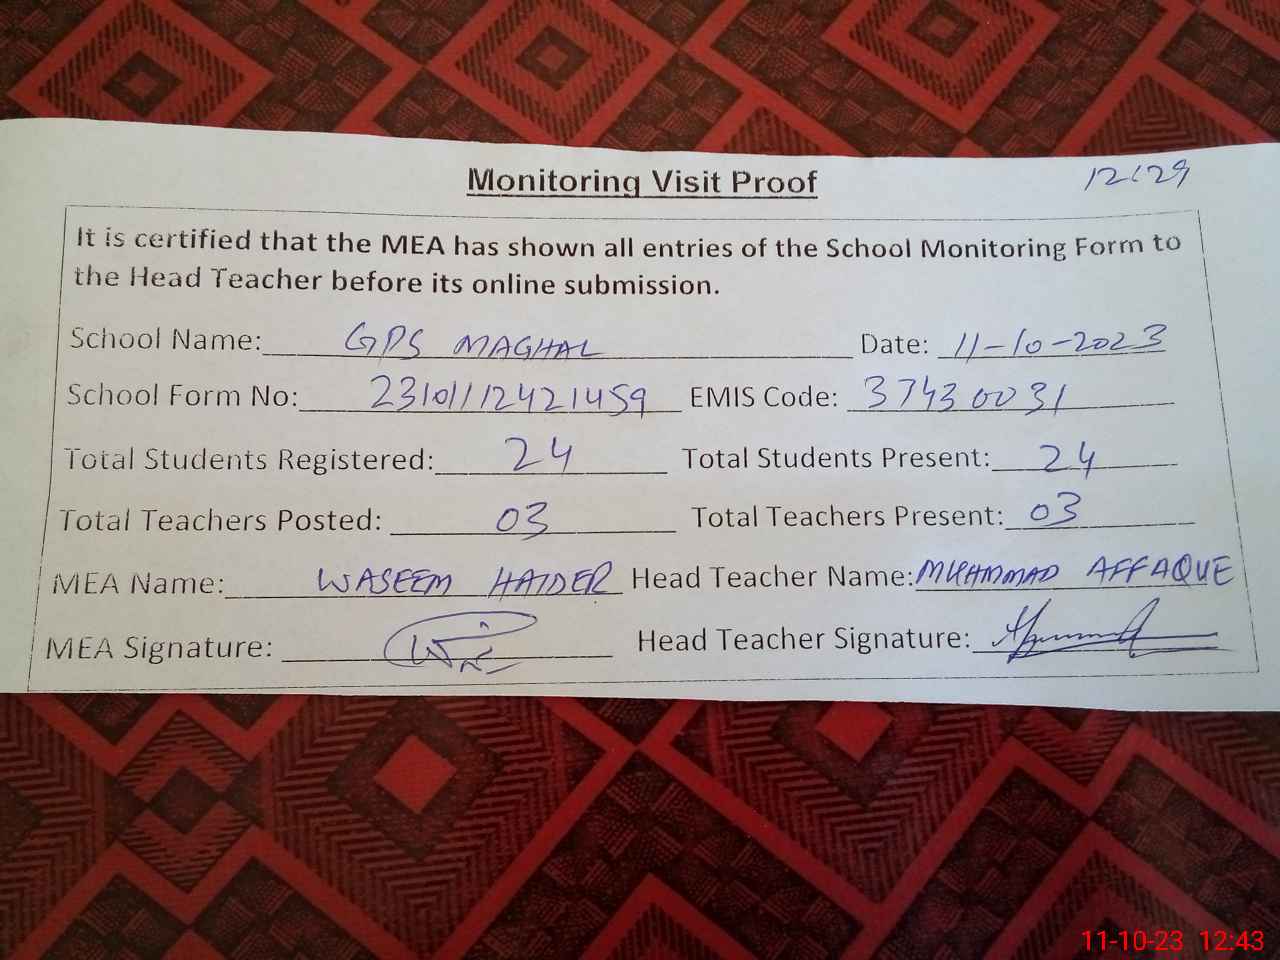 Monitoring Visit Proof
12:29
It is certified that the MEA has shown all entries of the School Monitoring Form to
the Head Teacher before its online submission.
School Name: GPS MAGHAL Date: 11-10-2023
School Form No: 23101112421459 EMIS Code: 37430031
Total Students Registered: 24 Total Students Present: 24
Total Teachers Posted: 03 Total Teachers Present: 03
MEA Name: WASEEM HAIDER Head Teacher Name: MUHAMMAD AFFAQUE
MEA Signature: Head Teacher Signature:
11-10-23 12:43